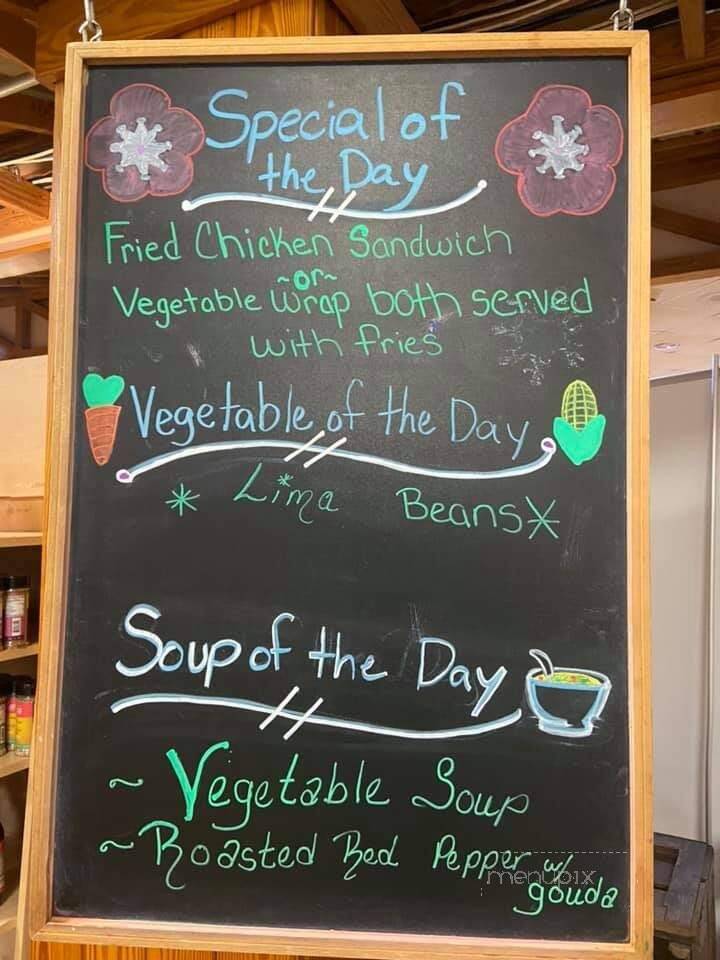 Special of
the Day
Fried Chicken Sandwich
~or~
Vegetable Wrap both served
with fries
Vegetable of the Day
* Lima Beans *
Soup of the Day
~ Vegetable Soup
~ Roasted Red Pepper w/
gouda
menupix